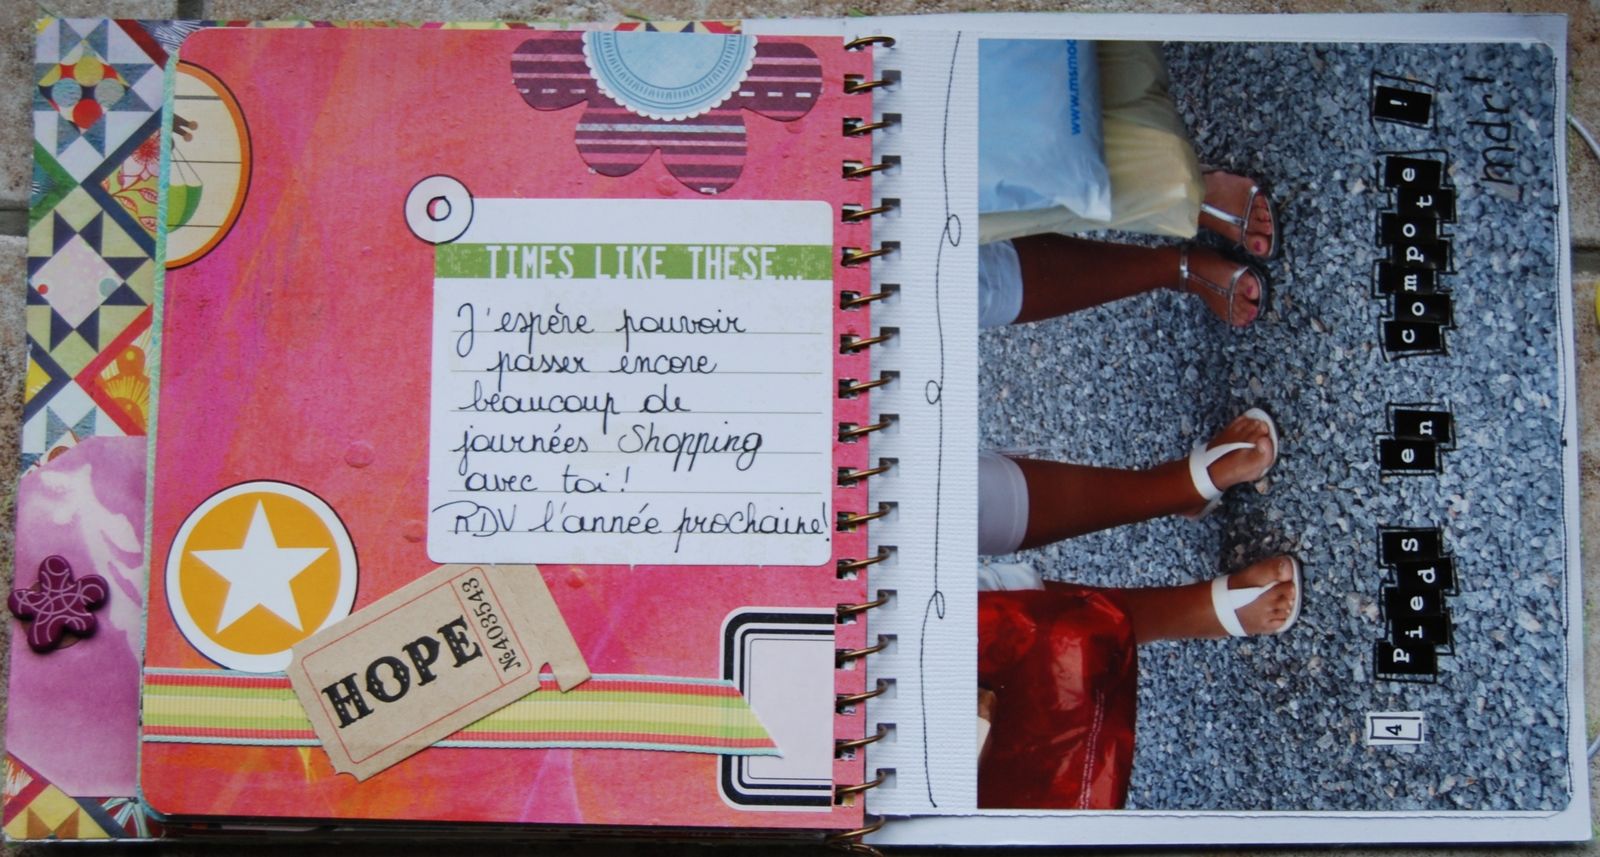 TIMES LIKE THESE...
J'espère pouvoir
passer encore
beaucoup de
journées Shopping
avec toi !
RDV l'année prochaine!
HOPE
№403543
www.msmod
4 PiedS en compote !
mdr!